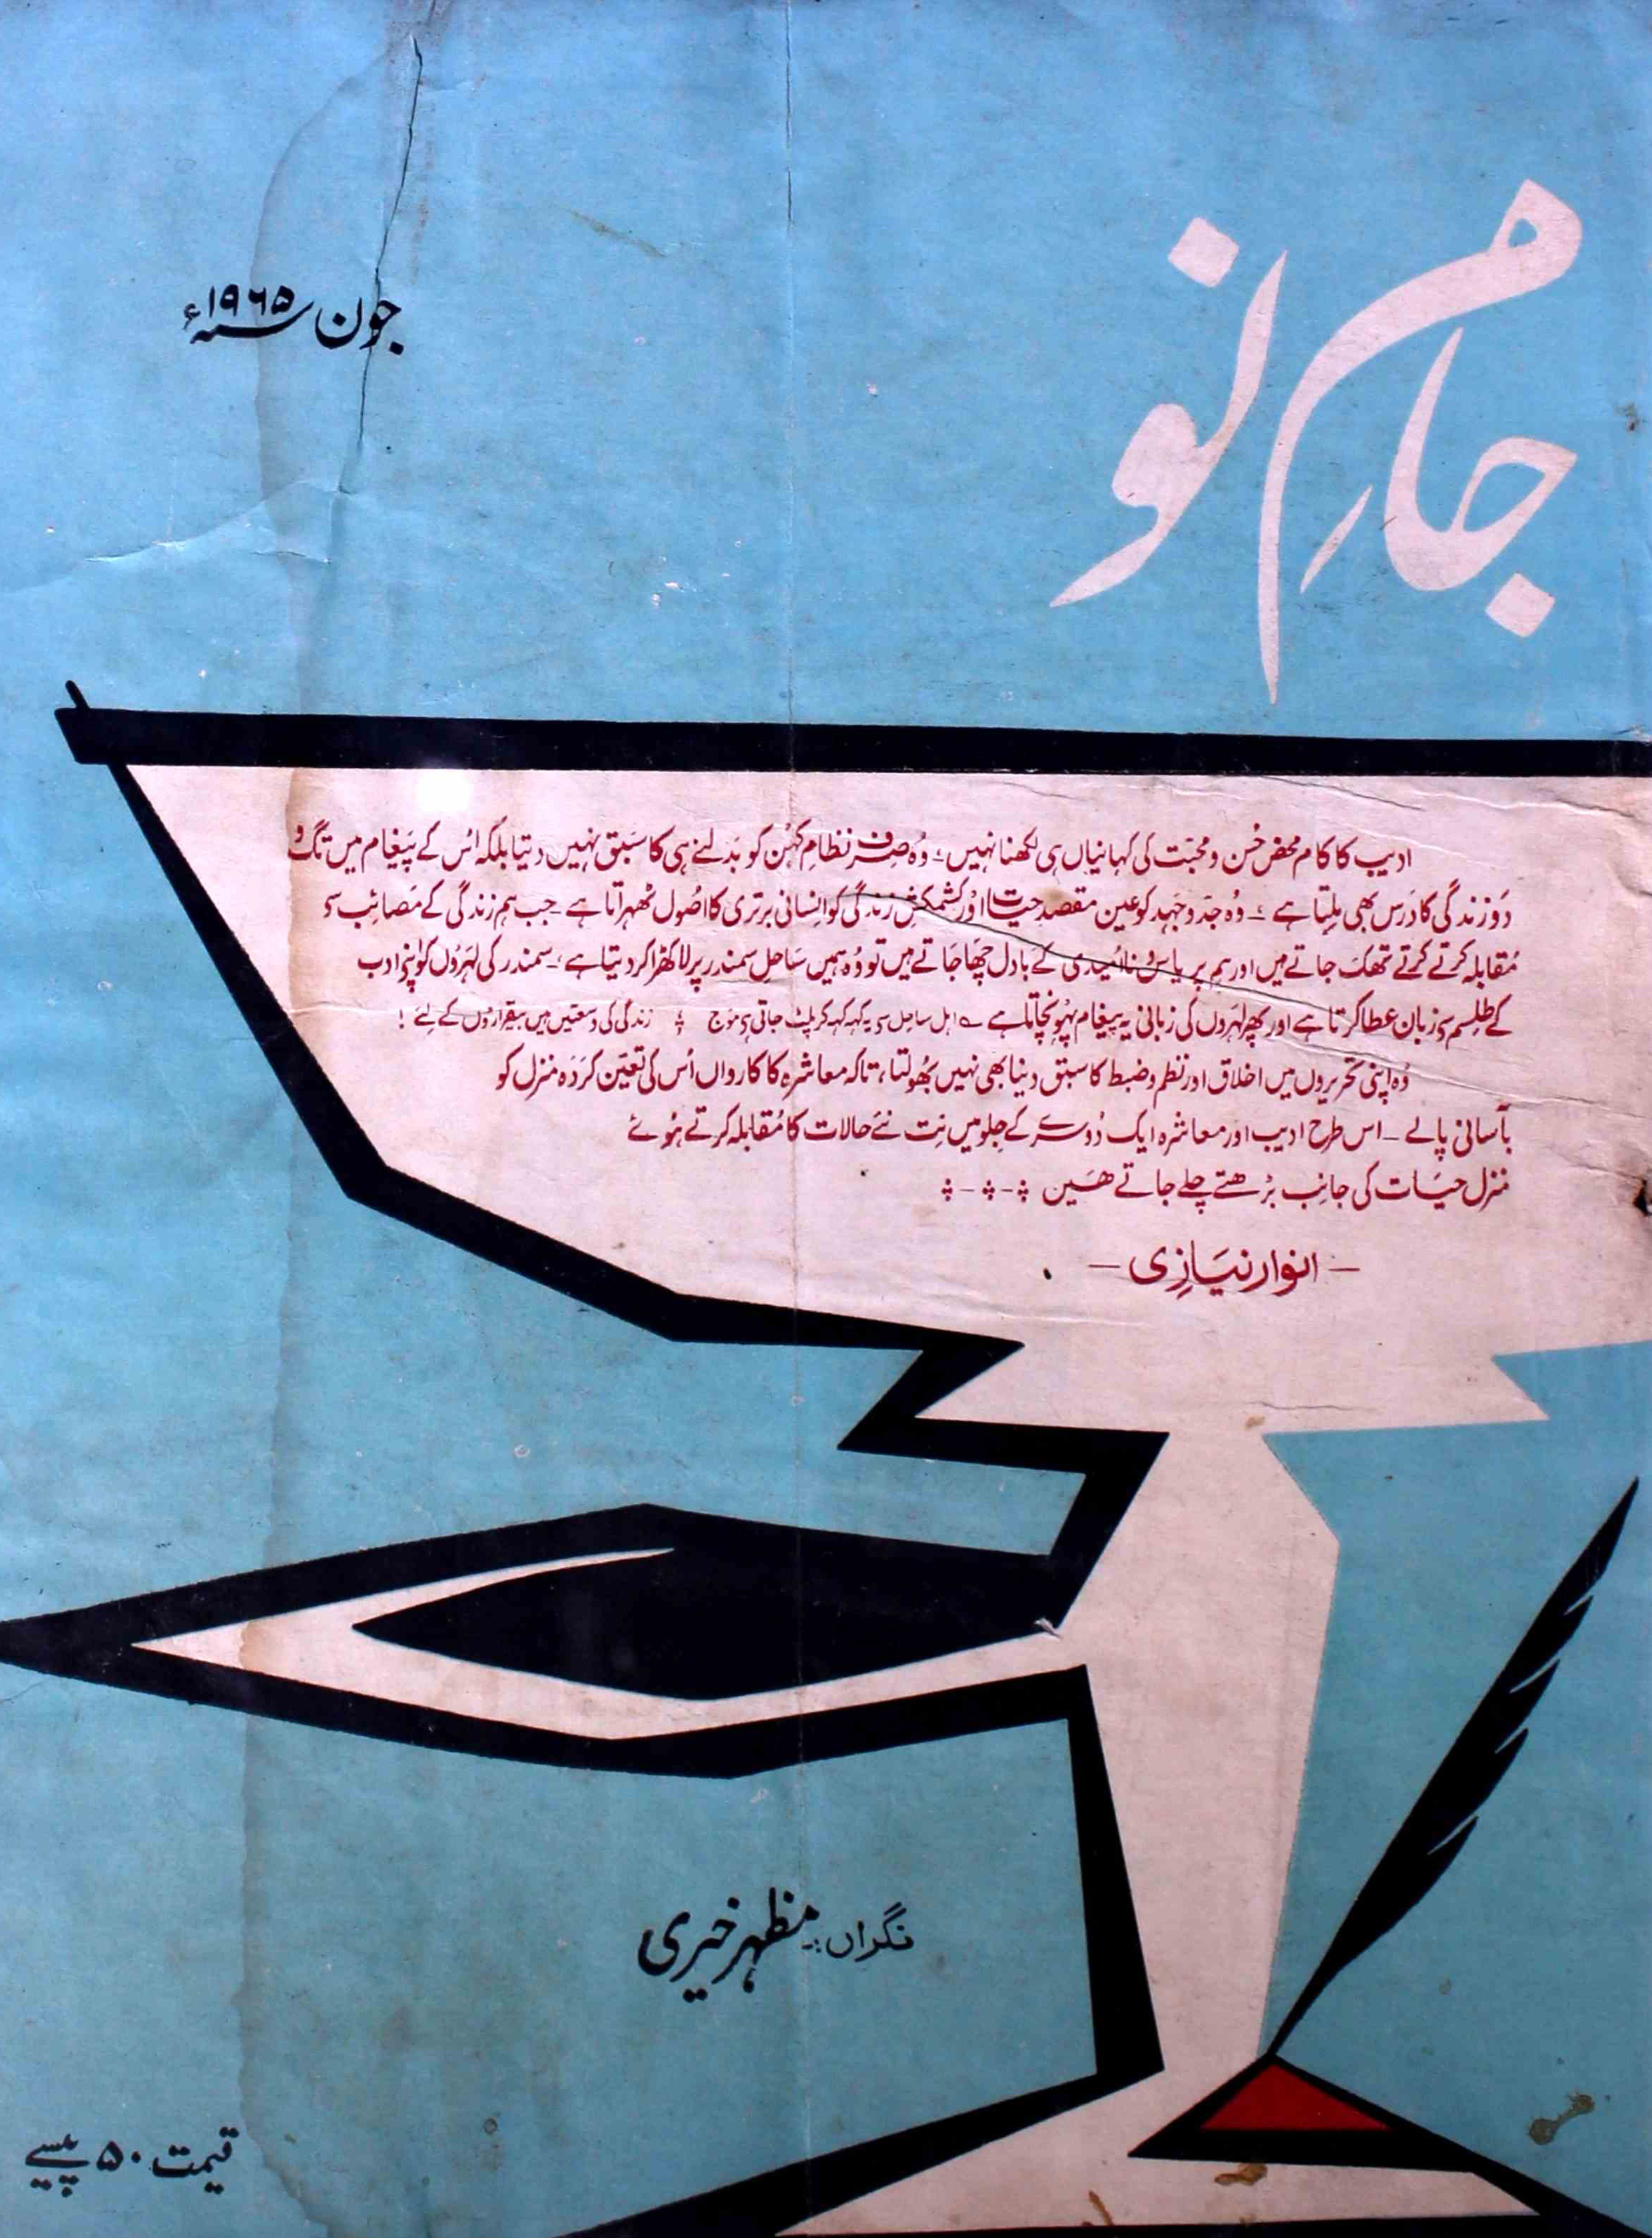 جامِ نو
جون ۱۹۶۵ء
ادیب کا کام محض حُسن و محبّت کی کہانیاں ہی لکھنا نہیں؛ وُہ صِرف نظامِ کہُن کو بَدلنے ہی کا سَبق نہیں دیتا بلکہ اُس کے پَیغام میں تگ و
دَو زندگی کا دَرس بھی مِلتا ہے؛ وُہ جدّوجہد کو عین مقصدِ حیات اور کشمکشِ زندگی کو اِنسانی برتری کا اصُول ٹھہراتا ہے۔ جب ہم زندگی کے مَصائب سے
مُقابلہ کرتے کرتے تھک جاتے ہیں اور ہم پر یاس و نااُمیدی کے بادل چھا جاتے ہیں تو وُہ ہمیں سَاحلِ سمندر پر لا کھڑا کر دیتا ہے۔ سمندر کی لہَروں کو اپنے ادب
کے طِلسم سے زبان عطا کرتا ہے اور پھر لہَروں کی زبانی یہ پیغام پہُونچاتا ہے ؎ اہلِ ساحل سے یہ کہہ کہہ کر پلٹ جاتی ہے موج ؛ زندگی کی وسعتیں ہیں بیقراروں کے لئے!
وُہ اپنی تحریروں میں اخلاق اور نظم و ضبط کا سبق دینا بھی نہیں بھُولتا، تاکہ معاشرہ کا کارواں اُس کی تعیّن کردَہ منزل کو
بآسانی پالے۔ اس طرح ادیب اور معاشرہ ایک دُوسرے کے جلو میں نِت نئے حالات کا مُقابلہ کرتے ہُوئے
منزلِ حیَات کی جانِب بڑھتے چلے جاتے ھَیں
— انوار نیَازِی —
نگراں:۔ مظہر خیری
قیمت ۵۰ پیسے